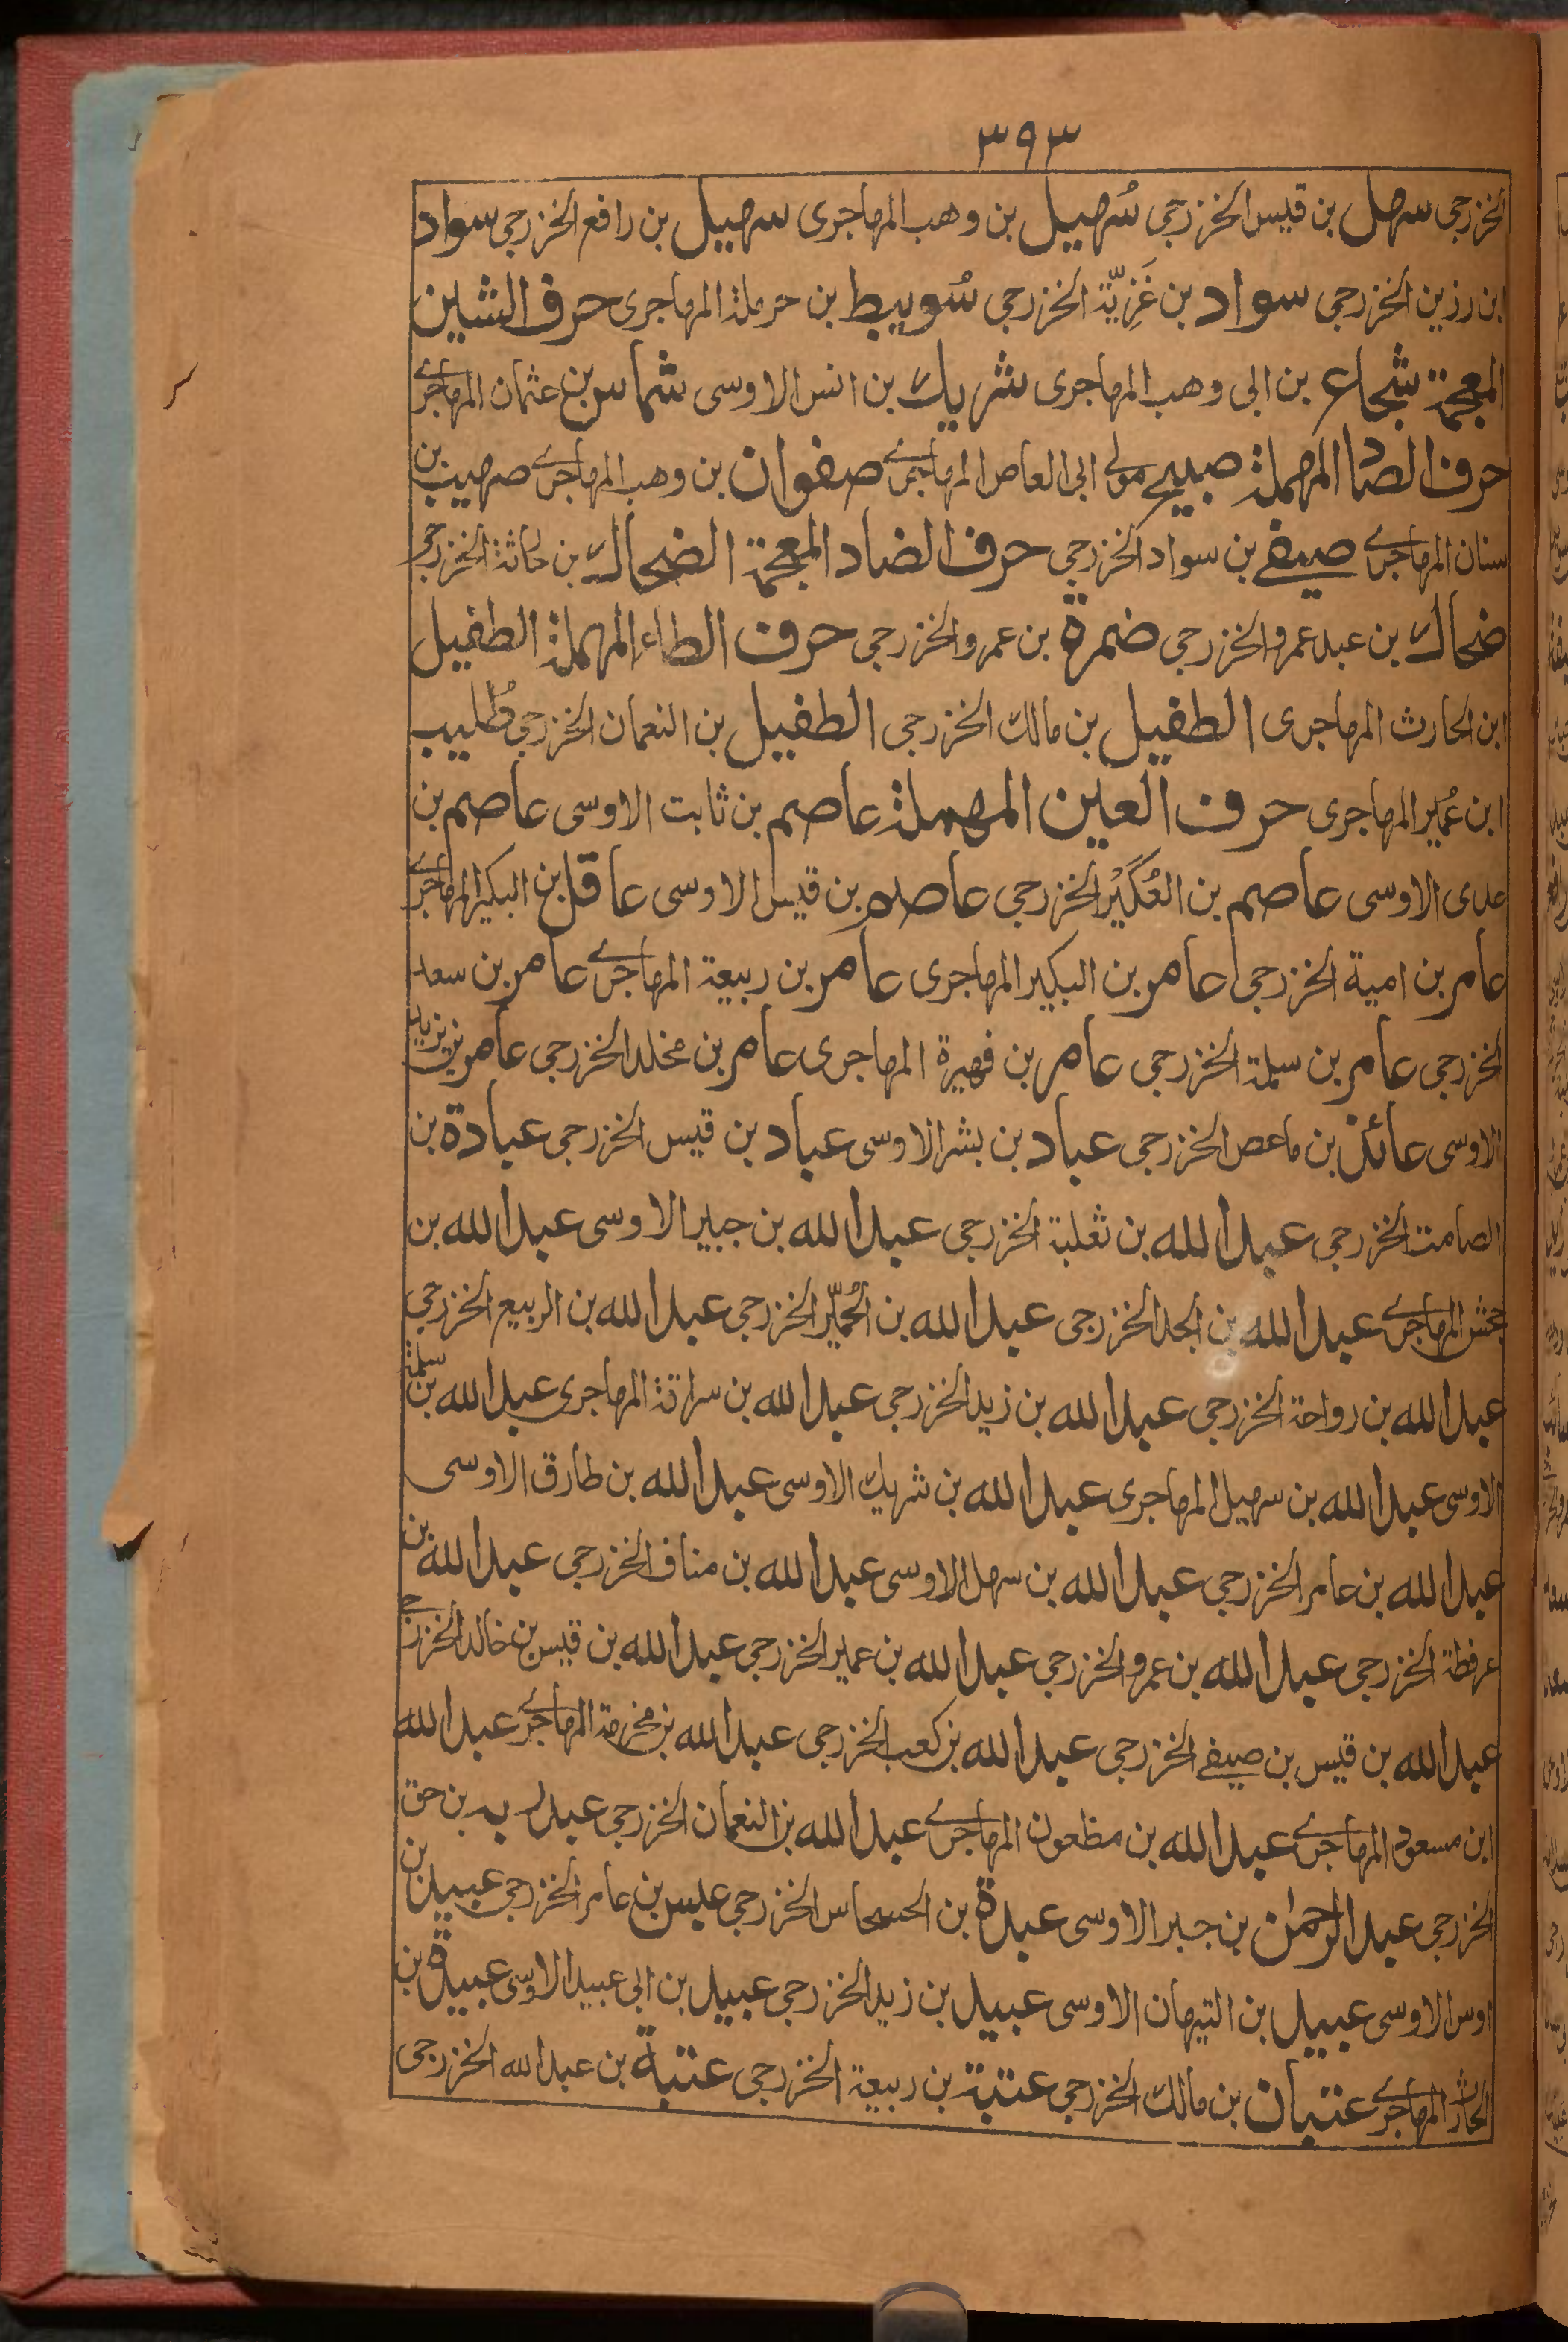 ٣٩٣
الخزرجی سهل بن قیس الخزرجی سُهیل بن وهب المهاجری سهیل بن رافع الخزرجی سواد
ابن رزین الخزرجی سواد بن غَزِیّة الخزرجی سُویبط بن حرملة المهاجری حرف الشین
المعجمة شجاع بن ابی وهب المهاجری شریك بن انس الاوسی شماس بن عثمان المهاجری
حرف الصاد المهملة صبیح مولی ابی العاص المهاجری صفوان بن وهب المهاجری صهیب بن
سنان المهاجری صیفی بن سواد الخزرجی حرف الضاد المعجمة الضحاك بن حارثة الخزرجی
ضحاك بن عبد عمرو الخزرجی ضمرة بن عمرو الخزرجی حرف الطاء المهملة الطفیل
ابن الحارث المهاجری الطفیل بن مالك الخزرجی الطفیل بن النعمان الخزرجی طُلیب
ابن عُمیر المهاجری حرف العین المهملة عاصم بن ثابت الاوسی عاصم بن
عدی الاوسی عاصم بن العُكَیْر الخزرجی عاصم بن قیس الاوسی عاقل بن البکیر المهاجری
عامر بن امیة الخزرجی عامر بن البکیر المهاجری عامر بن ربیعة المهاجری عامر بن سعد
الخزرجی عامر بن سلمة الخزرجی عامر بن فهیرة المهاجری عامر بن مخلد الخزرجی عامر بن یزید
الاوسی عائذ بن ماعص الخزرجی عباد بن بشر الاوسی عباد بن قیس الخزرجی عبادة بن
الصامت الخزرجی عبد الله بن ثعلبة الخزرجی عبد الله بن جبیر الاوسی عبد الله بن
جحش المهاجری عبد الله بن الجد الخزرجی عبد الله بن الحُمَیّر الخزرجی عبد الله بن الربیع الخزرجی
عبد الله بن رواحة الخزرجی عبد الله بن زید الخزرجی عبد الله بن سراقة المهاجری عبد الله بن سلمة
الاوسی عبد الله بن سهیل المهاجری عبد الله بن شریك الاوسی عبد الله بن طارق الاوسی
عبد الله بن عامر الخزرجی عبد الله بن سهل الاوسی عبد الله بن مناف الخزرجی عبد الله بن
عرفطة الخزرجی عبد الله بن عمرو الخزرجی عبد الله بن عمیر الخزرجی عبد الله بن قیس بن خالد الخزرجی
عبد الله بن قیس بن صیفی الخزرجی عبد الله بن کعب الخزرجی عبد الله بن مخرمة المهاجری عبد الله
ابن مسعود المهاجری عبد الله بن مظعون المهاجری عبد الله بن النعمان الخزرجی عبد ربه بن حق
الخزرجی عبد الرحمٰن بن جبر الاوسی عبدة بن الحسحاس الخزرجی عبس بن عامر الخزرجی عبید بن
اوس الاوسی عبید بن التیهان الاوسی عبید بن زید الخزرجی عبید بن ابی عبید الاوسی عبیدة بن
الحارث المهاجری عتبان بن مالك الخزرجی عتبة بن ربیعة الخزرجی عتبة بن عبد الله الخزرجی